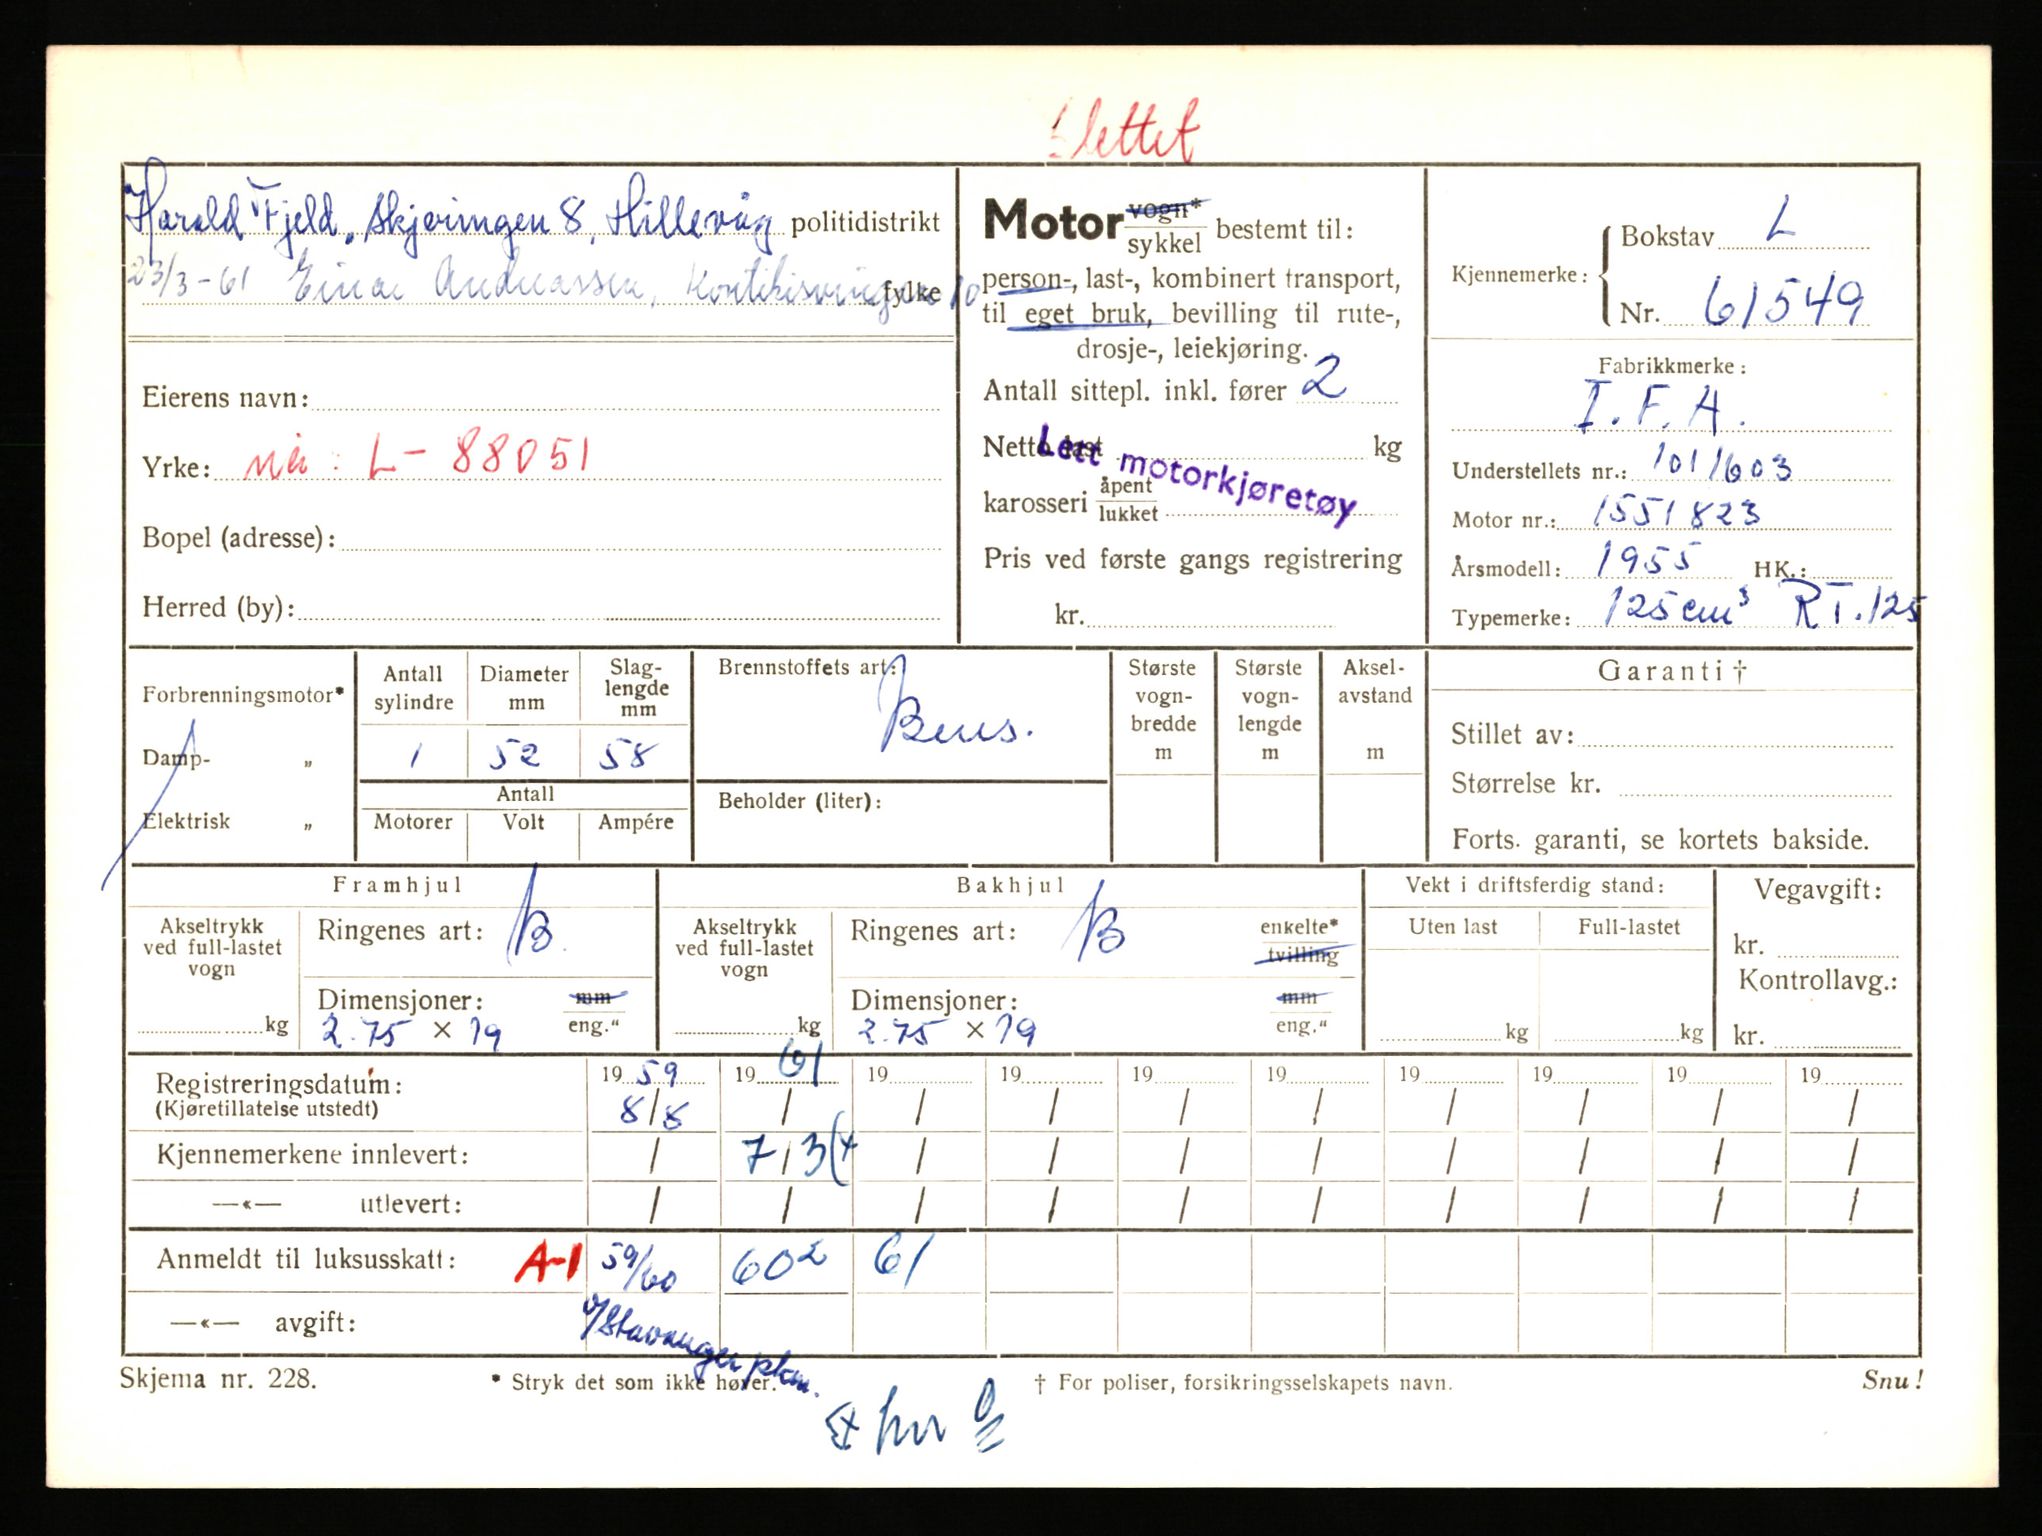 Slettet
Harald Fjeld, Skjeringen 8, Hillevåg politidistrikt
23/3-61 Einar Andreassen, Kontikisvingen 10 fylke
Eierens navn:
Yrke: nå: L-88051
Bopel (adresse):
Herred (by):
Motor vogn* sykkel bestemt til:
person-, last-, kombinert transport,
til eget bruk, bevilling til rute-,
drosje-, leiekjøring.
Antall sittepl. inkl. fører 2
Netto last kg
Lett motorkjøretøy
karosseri åpent lukket
Pris ved første gangs registrering
kr.
Kjennemerke: Bokstav L
Nr. 61549
Fabrikkmerke:
I.F.A.
Understellets nr.: 1011603
Motor nr.: 1551823
Årsmodell: 1955 HK.:
Typemerke: 125 cm³ RT.125
Forbrenningsmotor*
Damp- "
Elektrisk "
Antall sylindre
Diameter mm
Slag-lengde mm
1 52 58
Antall
Motorer Volt Ampére
Brennstoffets art:
Bens.
Beholder (liter):
Største vogn-bredde m
Største vogn-lengde m
Aksel-avstand m
Garanti †
Stillet av:
Størrelse kr.
Forts. garanti, se kortets bakside.
Framhjul
Akseltrykk ved full-lastet vogn
kg
Ringenes art: B
Dimensjoner: mm eng."
2.75 × 19
Bakhjul
Akseltrykk ved full-lastet vogn
kg
Ringenes art: B enkelte* tvilling
Dimensjoner: mm eng."
2.75 × 19
Vekt i driftsferdig stand:
Uten last Full-lastet
kg kg
Vegavgift:
kr.
Kontrollavg.:
kr.
Registreringsdatum: 19 59 19 61 19 19 19 19 19 19 19 19
(Kjøretillatelse utstedt) 8/8 / / / / / / / / /
Kjennemerkene innlevert: / 7/3 (4 / / / / / / / /
—«— utlevert: / / / / / / / / / /
Anmeldt til luksusskatt: A-1 59/60 60² 61
—«— avgift:
Stavanger plkm.
Skjema nr. 228. * Stryk det som ikke hører. † For poliser, forsikringsselskapets navn. Snu!